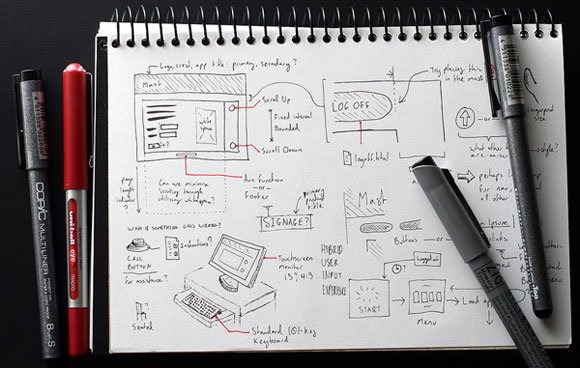 Logo, crest, app title: primary, secondary?
Mast
Scroll Up
Fixed interval
Bounded
Scroll Down
white
space
page
length
indicator
?
Can we minimize
scrolling through
utilizing whitespace?
Aux function
—or—
Footer
LOG OFF
Try placing this
in the mast
logoff.html
primary
product
title.
SIGNAGE?
Mast
Buttons —or—
links
HYBRID
USER
INPUT
Logged out
START
Menu
WHAT IF SOMETHING GOES WRONG?
CALL
BUTTON
for assistance?
Instructions?
Seated
Touchscreen
Monitor
15" 4:3
Standard 101-Key
Keyboard
fingerprint
size
—or—
what other
style?
perhaps
for
all other
COPIC MULTILINER
B-S
uni-ball eye
micro